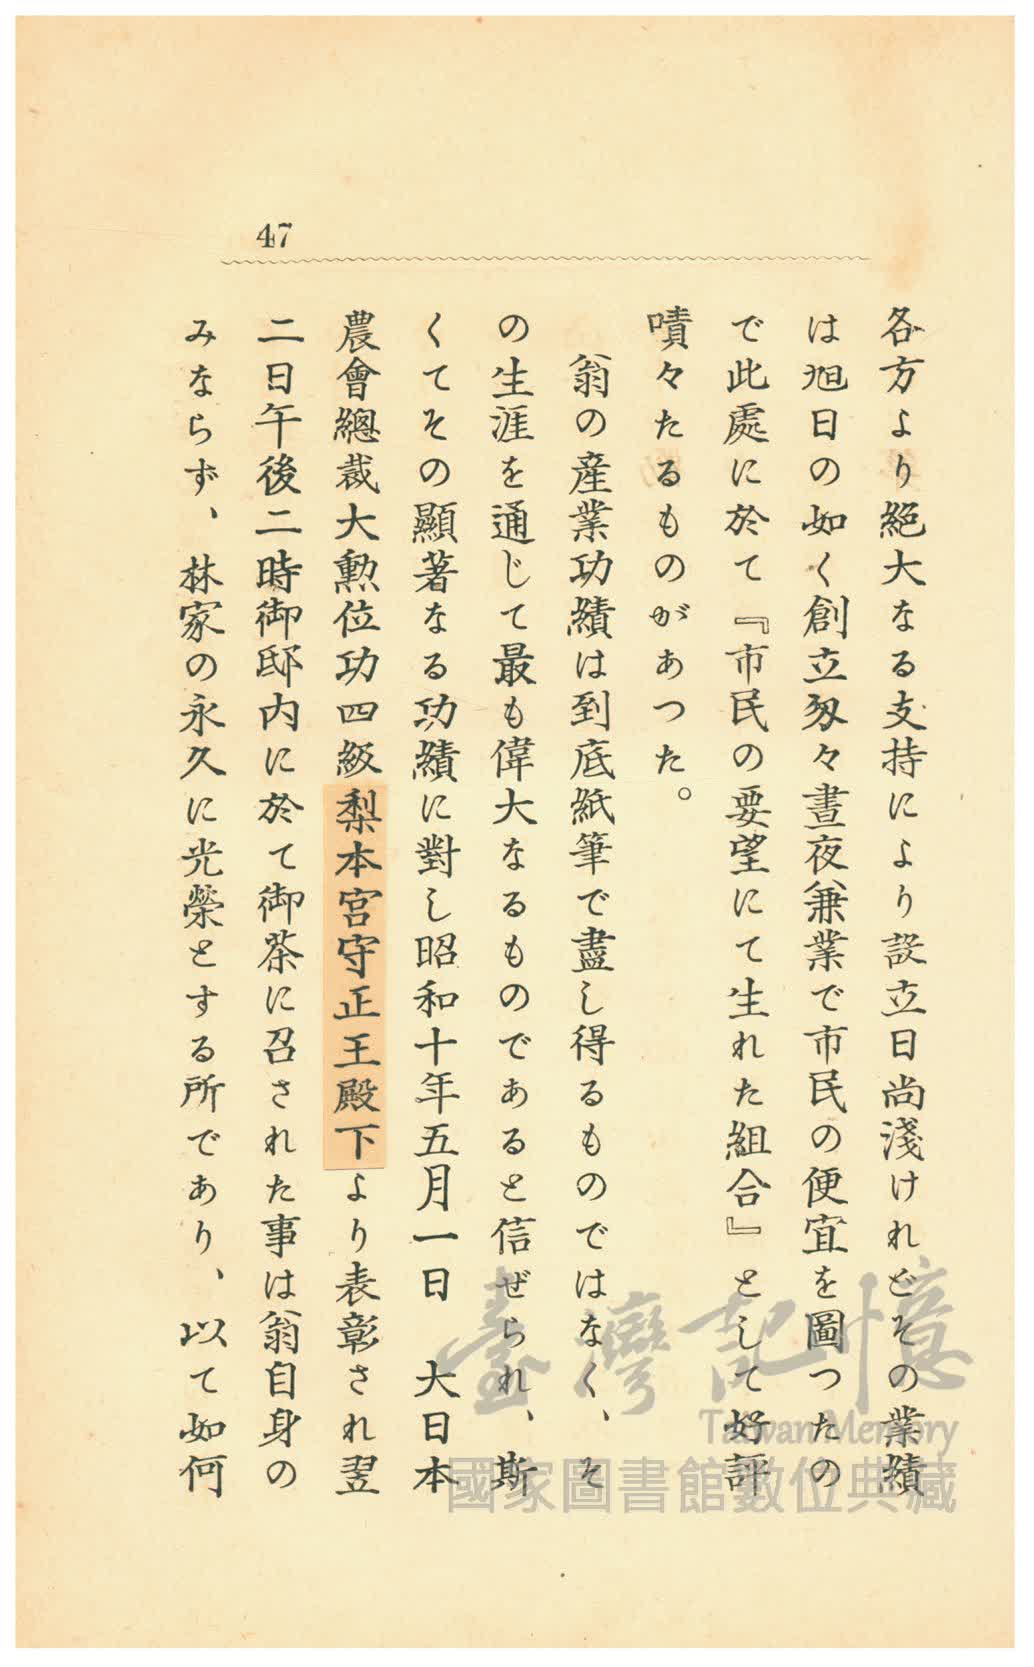 47
各方より絕大なる支持により設立日尚淺けれどその業績
は旭日の如く創立匆々晝夜兼業で市民の便宜を圖つたの
で此處に於て『市民の要望にて生れた組合』として好評
嘖々たるものがあつた。
翁の産業功績は到底紙筆で盡し得るものではなく、そ
の生涯を通じて最も偉大なるものであると信ぜられ、斯
くてその顯著なる功績に對し昭和十年五月一日 大日本
農會總裁大勲位功四級梨本宮守正王殿下より表彰され翌
二日午後二時御邸内に於て御茶に召された事は翁自身の
みならず、林家の永久に光榮とする所であり、以て如何
臺灣記憶
Taiwan Memory
國家圖書館數位典藏